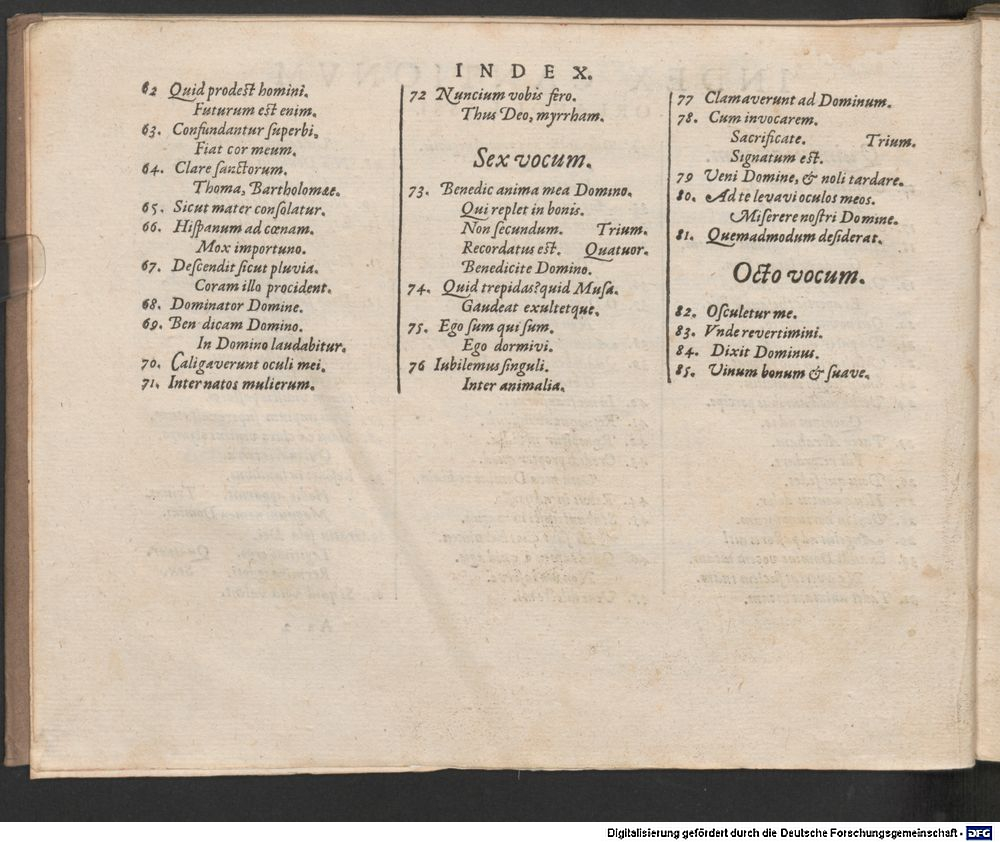 INDEX.
62 Quid prodest homini.
Futurum est enim.
63. Confundantur superbi.
Fiat cor meum.
64. Clare sanctorum.
Thoma, Bartholomæe.
65. Sicut mater consolatur.
66. Hispanum ad cœnam.
Mox importuno.
67. Descendit sicut pluvia.
Coram illo procident.
68. Dominator Domine.
69. Ben dicam Domino.
In Domino laudabitur.
70. Caligaverunt oculi mei.
71. Inter natos mulierum.
72 Nuncium vobis fero.
Thus Deo, myrrham.
Sex vocum.
73. Benedic anima mea Domino.
Qui replet in bonis.
Non secundum. Trium.
Recordatus est. Quatuor.
Benedicite Domino.
74. Quid trepidas? quid Musa.
Gaudeat exultetque.
75. Ego sum qui sum.
Ego dormivi.
76 Iubilemus singuli.
Inter animalia.
77 Clamaverunt ad Dominum.
78. Cum invocarem.
Sacrificate. Trium.
Signatum est.
79 Veni Domine, & noli tardare.
80. Ad te levavi oculos meos.
Miserere nostri Domine.
81. Quemadmodum desiderat.
Octo vocum.
82. Osculetur me.
83. Vnde revertimini.
84. Dixit Dominus.
85. Vinum bonum & suave.
Digitalisierung gefördert durch die Deutsche Forschungsgemeinschaft - DFG